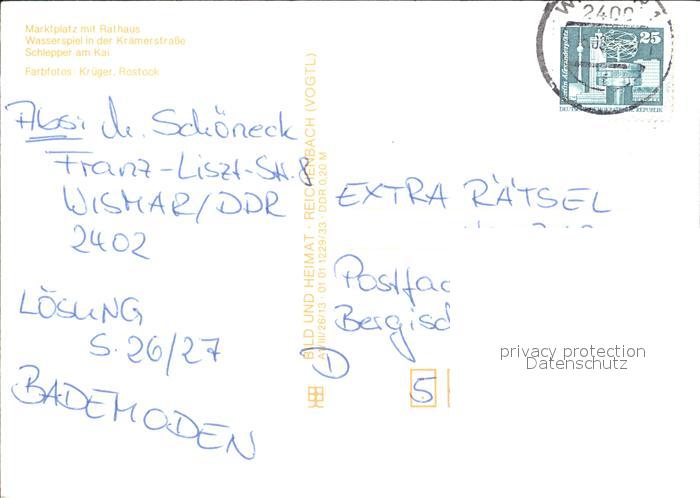 Marktplatz mit Rathaus
Wasserspiel in der Krämerstraße
Schlepper am Kai
Farbfotos: Krüger, Rostock
Abs: M. Schöneck
Franz-Liszt-Str. 8
WISMAR/DDR
2402
LÖSUNG
S. 26/27
BADEMODEN
BILD UND HEIMAT · REICHENBACH (VOGTL)
A1/III/26/13 · 01 01 1229/33 · DDR 0,20 M
2400
25
EXTRA RÄTSEL
Postfac
Bergisc
D
5
privacy protection
Datenschutz